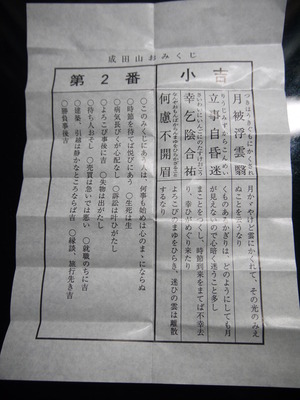 成田山おみくじ
第2番
小吉
月被浮雲翳
立事自昏迷
幸乞陰合祐
何慮不開眉
月かくやけど雲にかくれて、その光のみえ
ぬことをいうなり
くものあるかぎりは、どのようにしても月
が見えないので心暗く迷うこと多し
まことをつくし、時節到来をまてば不幸去
り、幸ひめぐり来たり
よろこびてまゆをひらき、迷ひの雲は離散
するなり
○このみくじにあう人は、何事も始めは心のまゝにならぬ
○時節を待てば悦びにあう ○生死は生
○病気長びくが心配なし ○訴訟は叶ひがたし
○よろこび事後に吉 ○失物は出がたし
○待ち人おそし ○売買は急いでは悪い ○就職のちに吉
○建築、引越は静かなところならば吉 ○縁談、旅行先き吉
○勝負事後吉